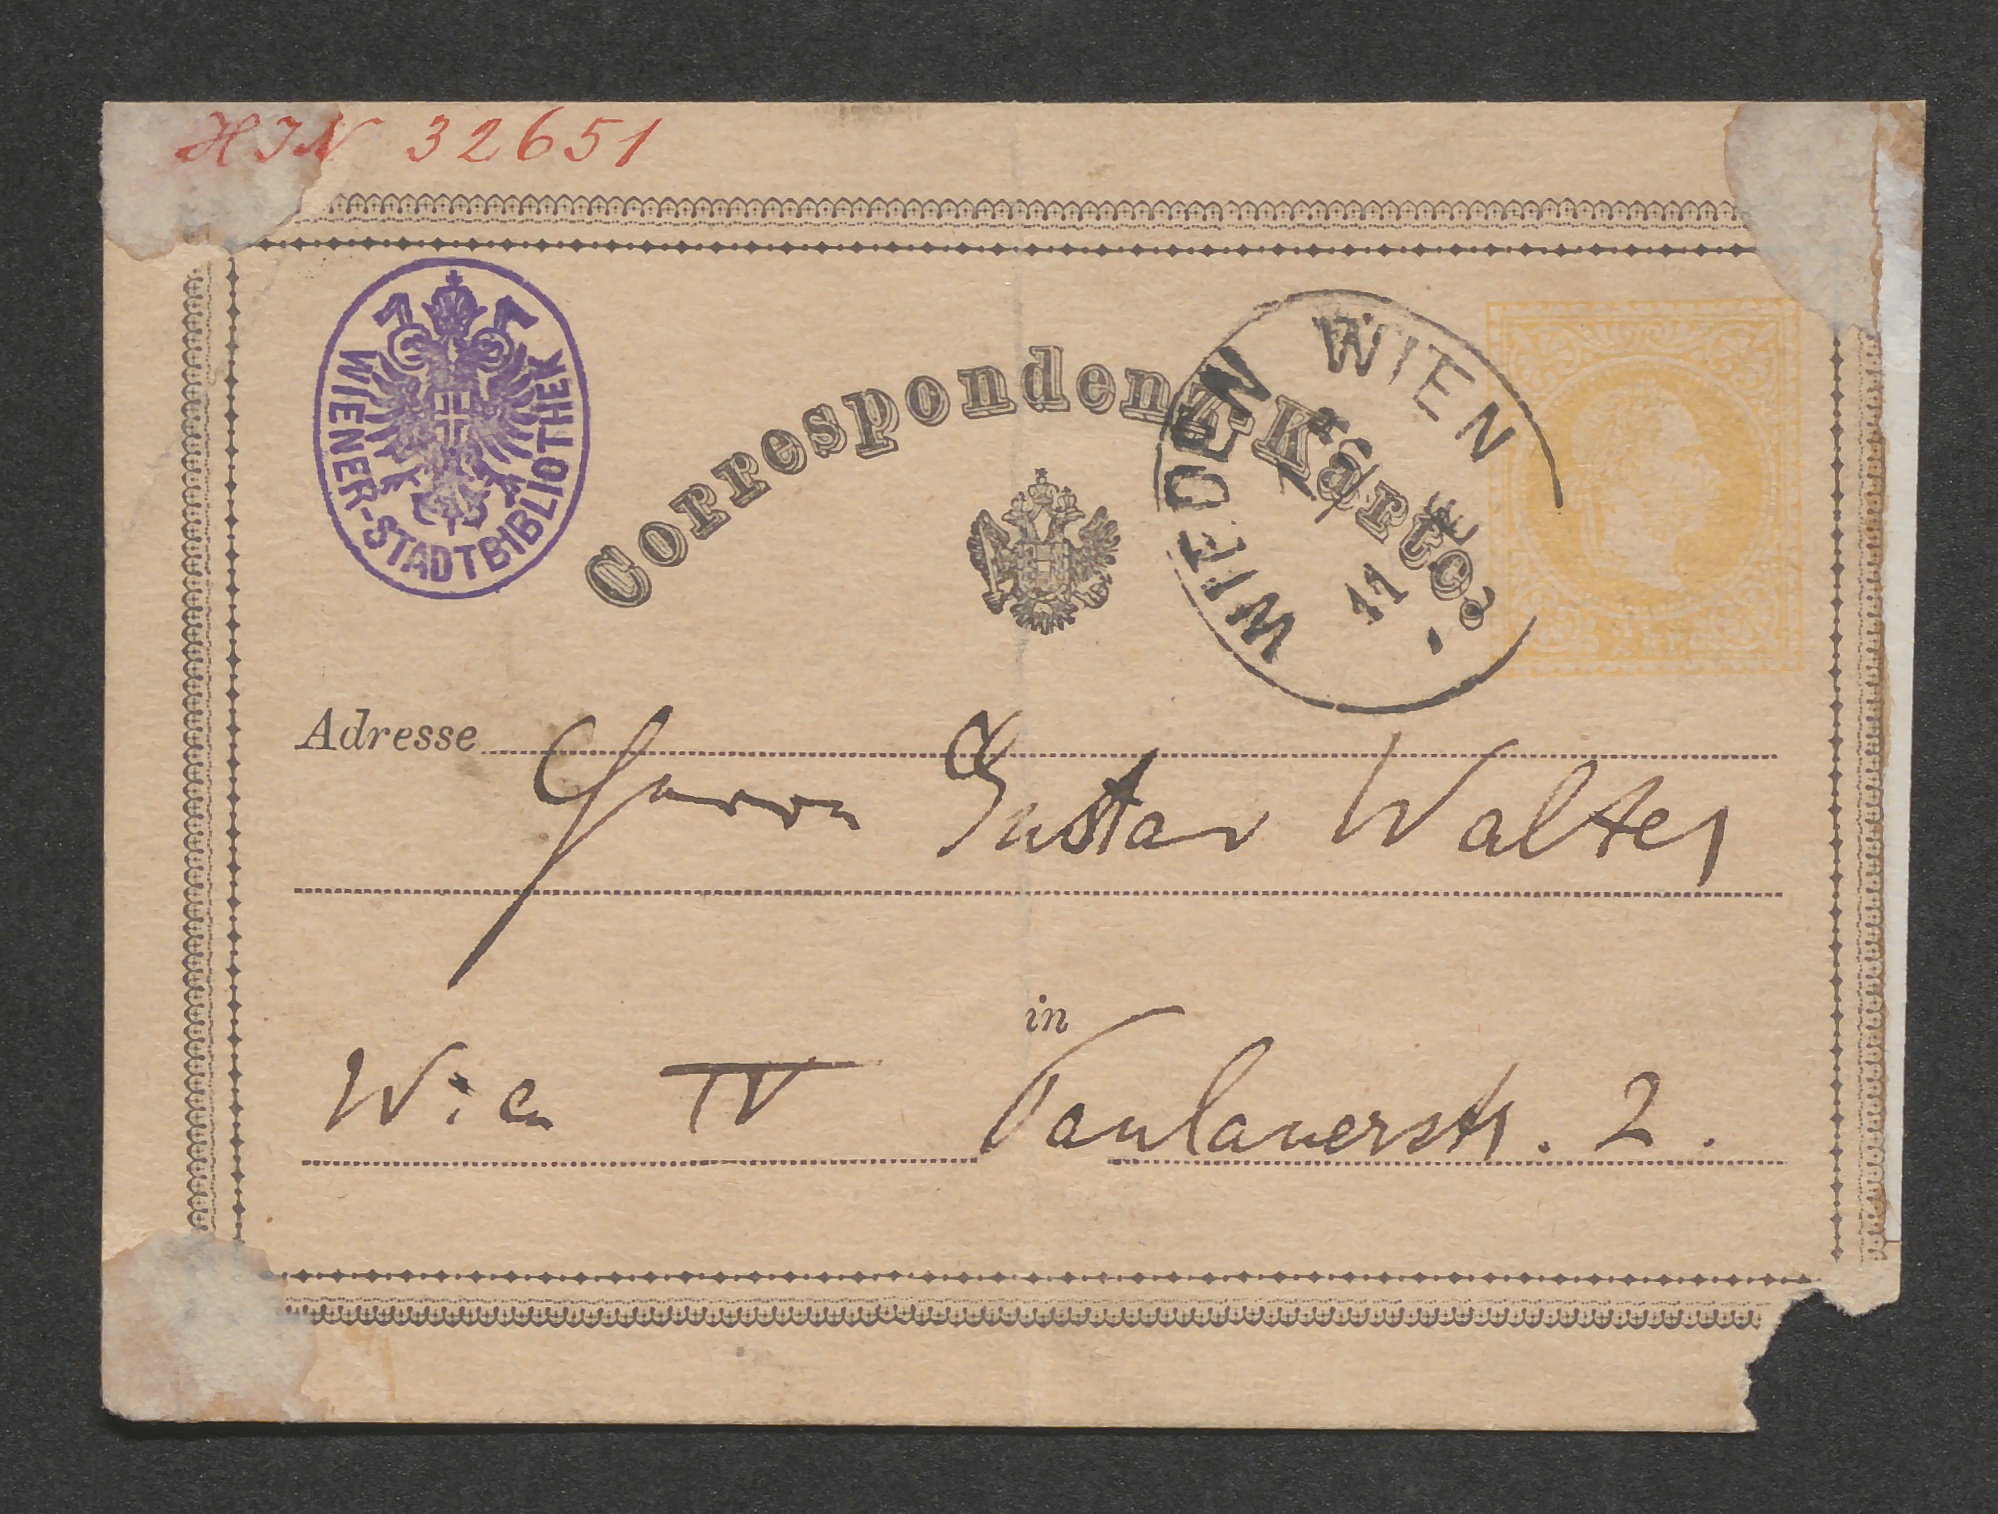 HIN 32651
WIENER-STADTBIBLIOTHEK
Correspondenz-Karte.
WIEDEN WIEN
11
2 kr.
Adresse Herrn Gustav Walter
in
Wien IV Paulanerstr. 2.